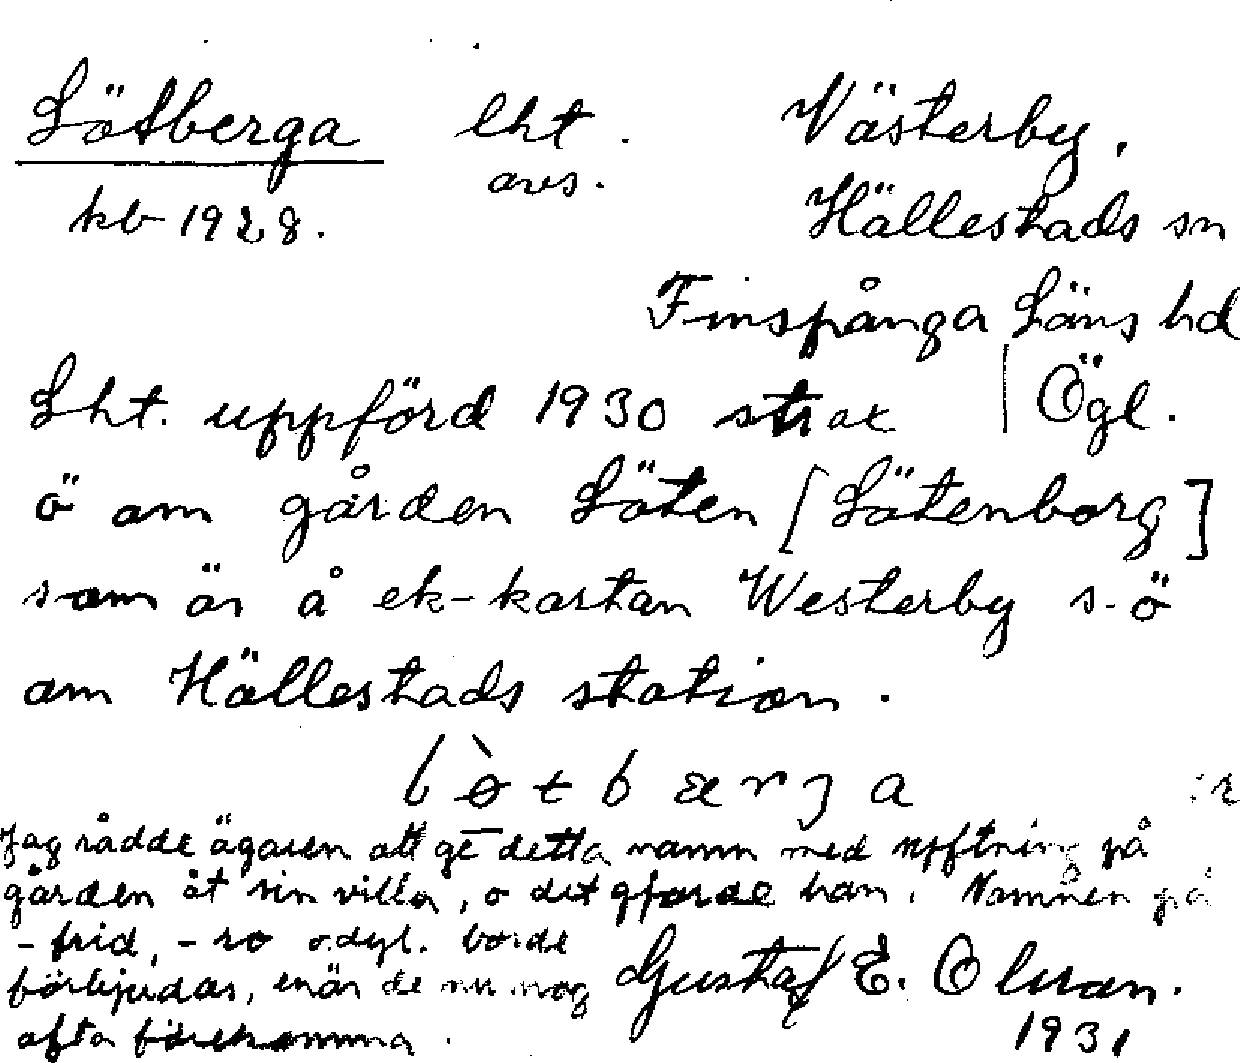 Lötberga lht. Västerby,
avs. Hällestads sn
kb 1928.
Finspånga Läns hd
Lht. uppförd 1930 strax | Ögl.
ö om gården Löten [Lötenborg]
som är å ek-kartan Westerby s-ö
om Hällestads station.
Jag rådde ägaren att ge detta namn med syftning på
gården åt sin villa, o det gjorde han. Namnen på
-frid, -ro o.dyl. borde
förbjudas, enär de nu nog Gustaf E. Olsson.
ofta förekomma. 1931